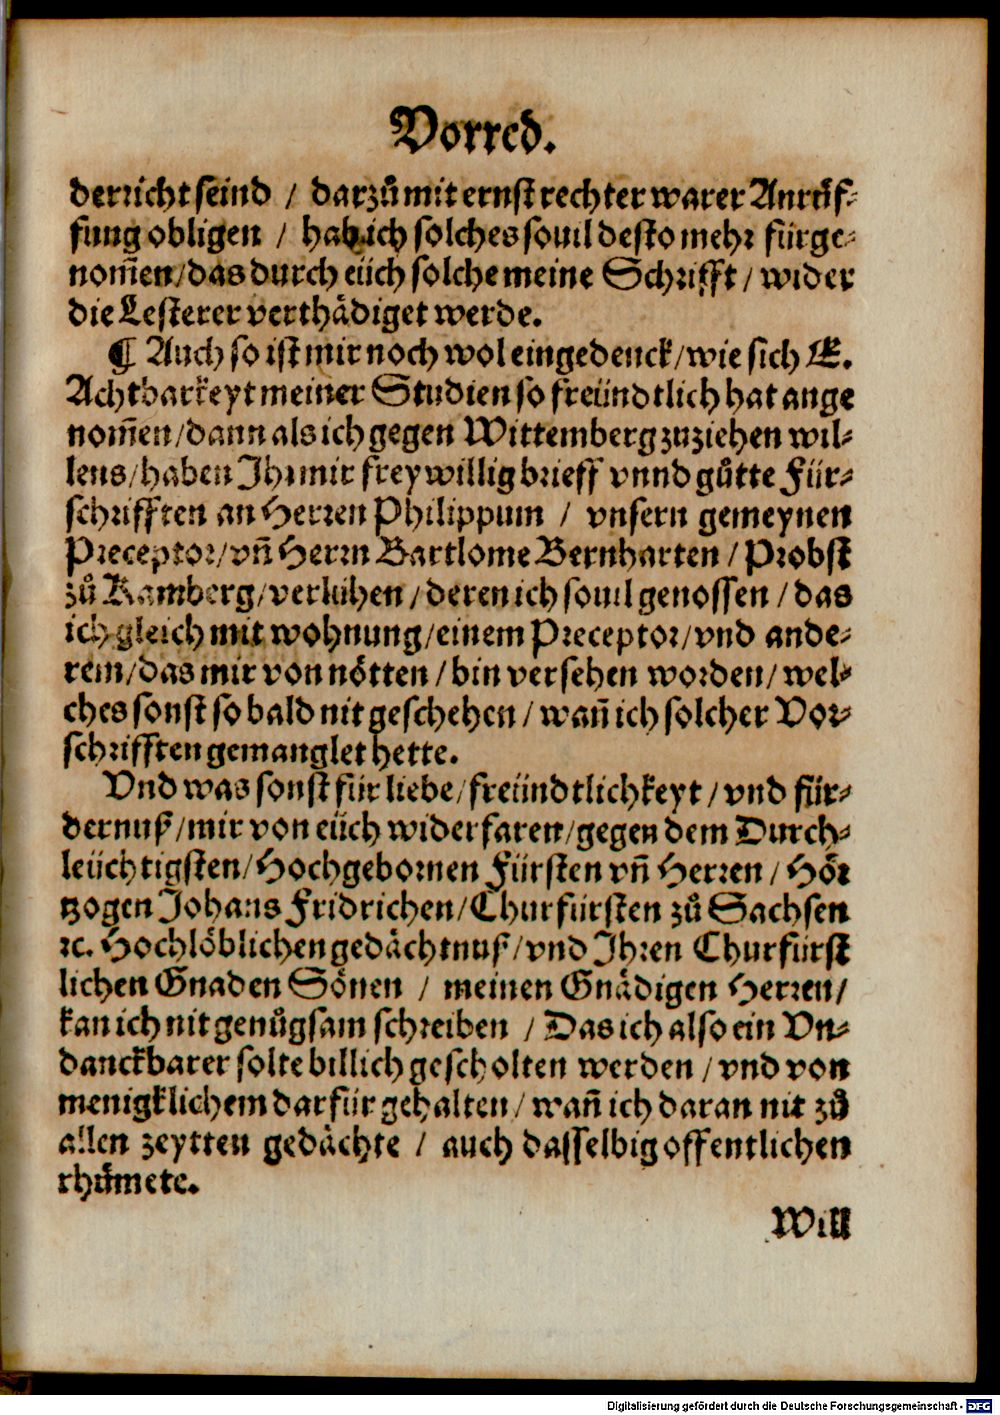 Vorred.
derricht seind / darzů mit ernst rechter warer Anrůf-
fung obligen / hab ich solches souil desto mehr fürge-
nom̄en/das durch eüch solche meine Schrifft / wider
die Lesterer verthädiget werde.
¶ Auch so ist mir noch wol eingedenck/wie sich E.
Achtbarkeyt meiner Studien so freündtlich hat ange
nom̄en/dann als ich gegen Wittemberg zuziehen wil-
lens/haben Ihr mir freywillig brieff vnnd gůtte Für-
schrifften an Herren Philippum / vnsern gemeynen
Preceptor/vn̄ Herrn Bartlome Bernharten / Probst
zů Kamberg/verlühen / deren ich souil genossen / das
ich gleich mit wohnung/einem Preceptor/vnd ande-
rem/das mir von nötten / bin versehen worden/ wel-
ches sonst so bald nit geschehen / wan̄ ich solcher Vor-
schrifften gemanglet hette.
Vnd was sonst für liebe/freündtlichkeyt / vnd für-
dernuß/mir von eüch widerfaren/gegen dem Durch-
leüchtigsten/Hochgebornen Fürsten vn̄ Herren / Hör
tzogen Johans Fridrichen/Churfürsten zů Sachsen
ꝛc. Hochlöblichen gedächtnuß/vnd Ihren Churfürst
lichen Gnaden Sönen / meinen Gnädigen Herren/
kan ich nit genůgsam schreiben / Das ich also ein Vn-
danckbarer solte billich gescholten werden / vnd von
menigklichem darfür gehalten/ wan̄ ich daran nit zů
allen zeytten gedächte / auch dasselbig offentlichen
rhůmete.
Will
Digitalisierung gefördert durch die Deutsche Forschungsgemeinschaft - DFG